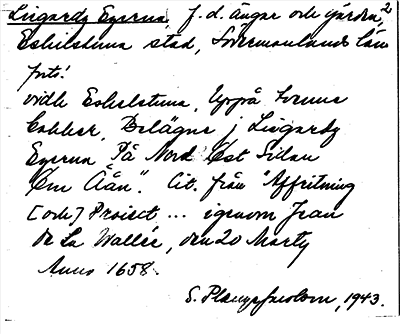 Lisgardz Egorna, f.d. ängar och gärden, 2
Eskilstuna stad, Södermanlands län
"widh Eskelstuna, Uppå
Belägne j Lisgardz
Egorna På Nord Öst Sidan
Om Åån". Cit. från "Affritning
[och] Project ... igenom Jean
De La Vallée, den 20 Marty
Anno 1658.
S. 1943.